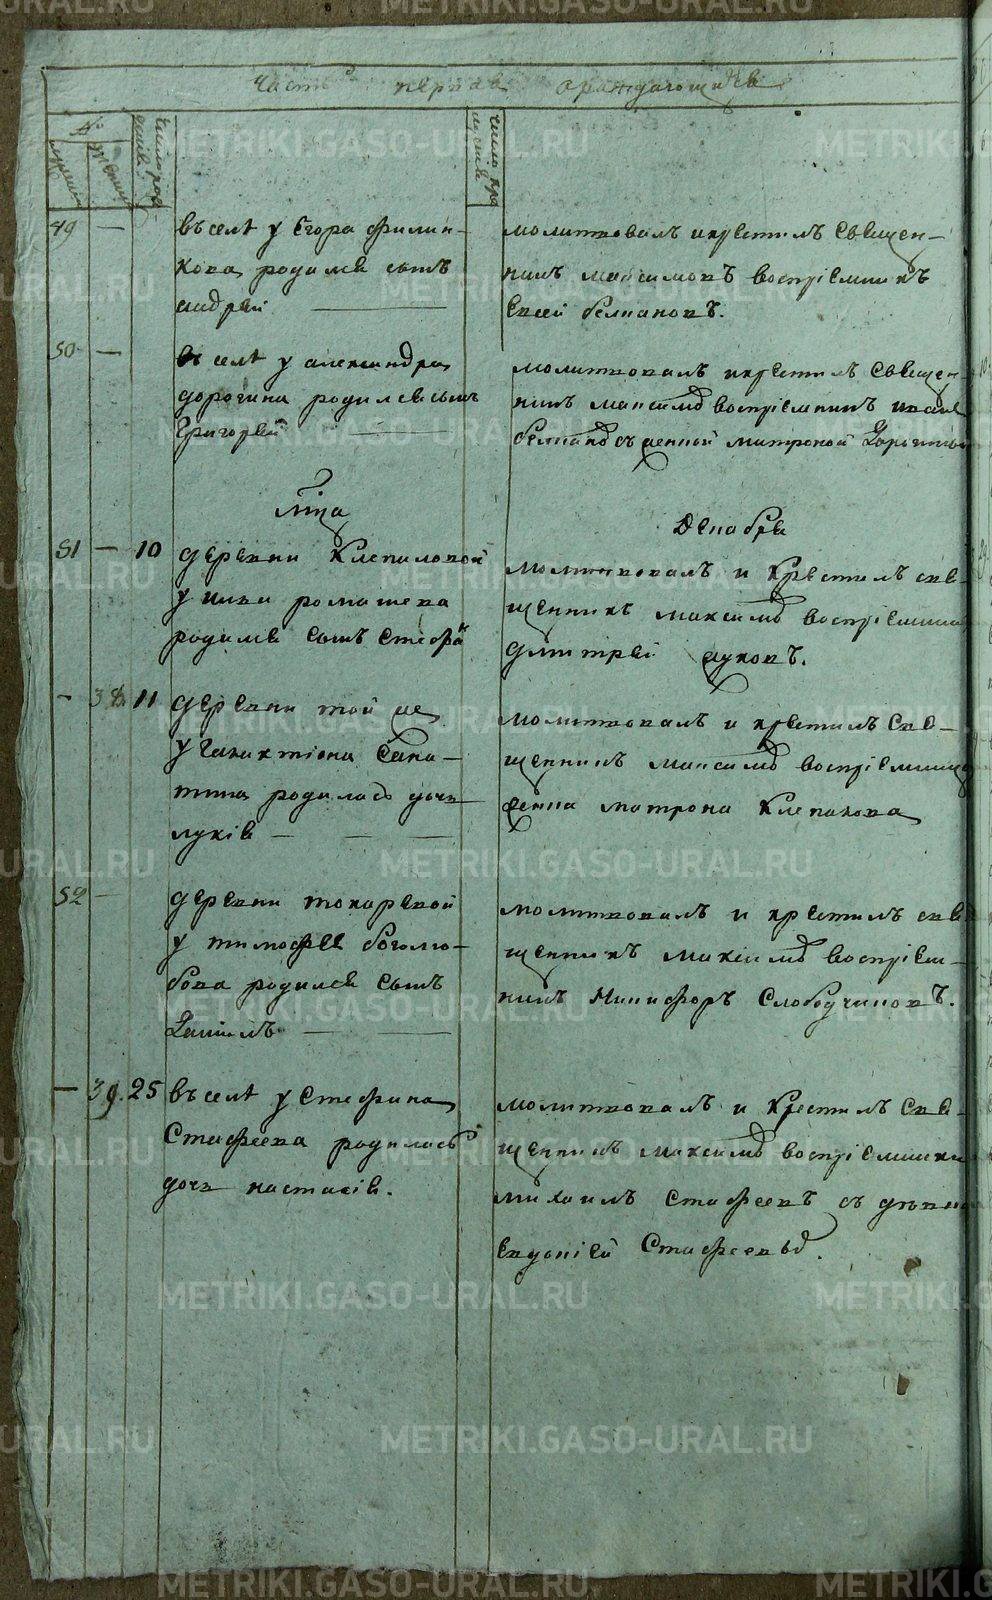 часть первая о раждающихся
№
мужеска
женска
число рождения
число кре
щения
49 —
въ селѣ у Егора Филин-
кова родился сынъ
андрей
молитвовалъ и крестилъ священ-
никъ максимовъ воспрiемникъ
50 —
въ селѣ у александра
дорогина родился сынъ
григорей
молитвовалъ и крестилъ священ-
никъ максимовъ воспрiемникъ
женой матроной
Декабря
51 — 10
деревни Клепиловой
родился сынъ Стефанъ
молитвовалъ и крестилъ свя-
щенникъ максимовъ воспрiемникъ
Дмитрей жуковъ.
— 38. 11
деревни той же
у галактiона Сапо-
родилась дочь
лукiя —
молитвовалъ и крестилъ свя-
щенникъ максимовъ воспрiемница
женка матрона Клепалова
52 —
деревни токарской
у тимофея боголю-
бова родился сынъ
Данiилъ —
молитвовалъ и крестилъ свя-
щенникъ максимовъ воспрiем-
никъ Никифоръ Слободчиковъ.
— 39. 25
въ селѣ у Стефана
Стафеева родилась
дочь настасiя.
молитвовалъ и крестилъ свя-
щенникъ максимовъ воспрiемники
михаилъ Стафеевъ съ дѣвкой
Евдокiей Стафеевой.
METRIKI.GASO-URAL.RU